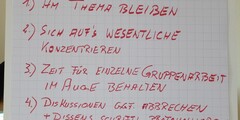 1.) AM THEMA BLEIBEN
2.) SICH AUF'S WESENTLICHE
KONZENTRIEREN
3.) ZEIT FÜR EINZELNE GRUPPENARBEIT
IM AUGE BEHALTEN
4.) DISKUSSIONEN GGF. ABBRECHEN
+ DISSENS SCHRIFTL.